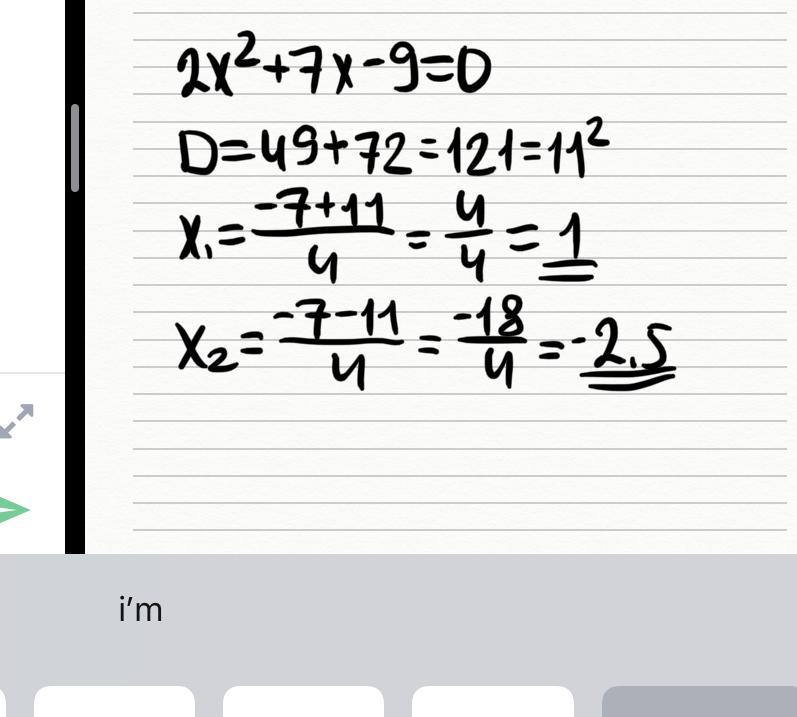 2x²+7x-9=0
D=49+72=121=11²
x₁=(-7+11)/4=4/4=1
x₂=(-7-11)/4=-18/4=-2.5
i'm